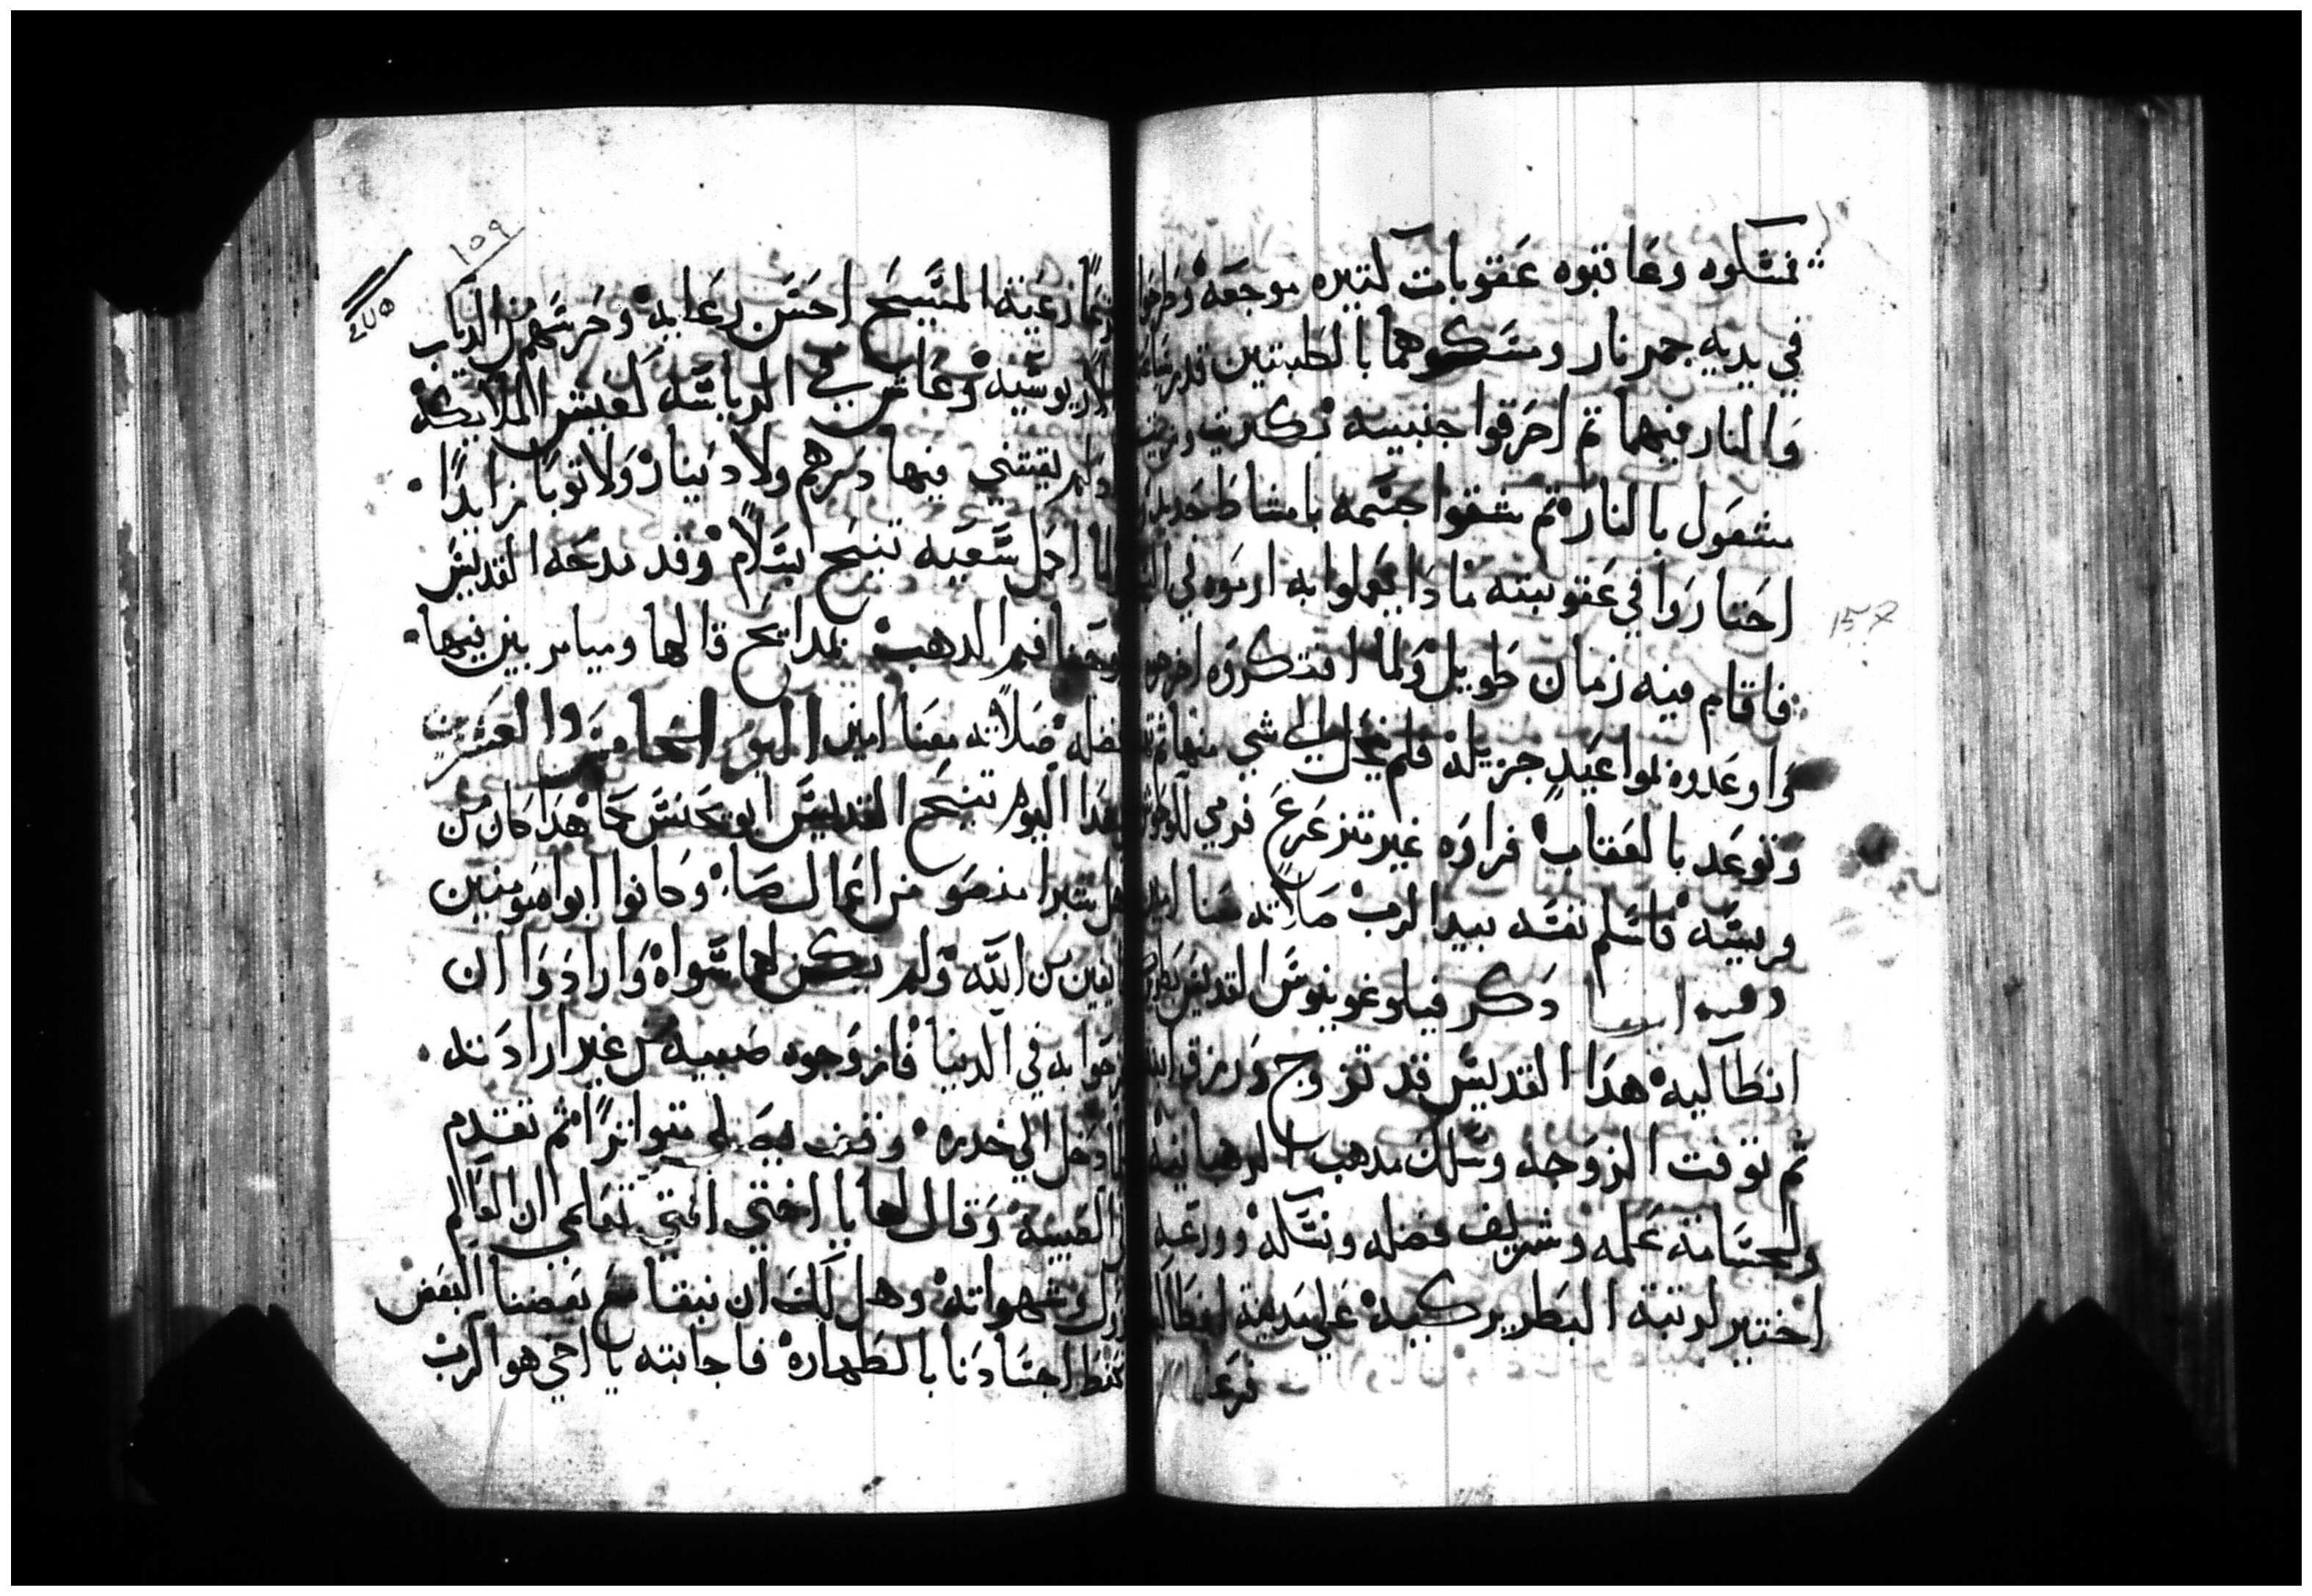 فمسكوه وعاقبوه عقوبات كتيره موجعه وطرحوا
في يديه جمر نار ومسكوهما بالطبتين قدر ساعه
والنار فيهما تم احرقوا جنبيه بكبريت وزيت
مشعول بالنار تم مشقوا جسمه بامشاط حديد
احتاروا في عقوبته مادا يعملوا به ارموه في
فاقام فيه زمان طويل ولما افتكروه اخرجوه
واوعدوه بمواعيد جزيله فلم يميل الي شي منها
وتوعد بالعقاب فراوه غير متزعزع فرمي
وبسيه فاسلم نفسه بيد الرب صلاته معنا امين
وفيه ايضا دكر فيلوغونيوس القديس بطريرك
انطاكيه هدا القديس قد تزوج ورزق ابنه
تم توفت الزوجه وسلك مدهب الرهبانيه
ولجسامة علمه وشريف فضله ونسكه وورعه
اختير لرتبة البطريركيه علي مدينة انطاكيه
فرعا
١٥٧
١٥٩
٢٧٥
رعية المسيح احسن رعايه وحرسهم من الدياب
الاريوسيه وعاش في الرياسه كعيش الملايكه
ولم يقتني فيها درهم ولا دينار ولا توبا زايدا
ولما اكمل سعيه تنيح بسلام وقد مدحه القديس
يوحنا فم الدهب بمدايح قالها وميامر بين فيها
فضله صلاته معنا امين اليوم الخامس والعشرين
بهدا اليوم تنيح القديس ابو يحنس كاما هدا كان من
اهل شبرا منصو من اعمال صا وكانوا ابواه مومنين
خايفين من الله ولم يكن لهما سواه وارادوا ان
يفرحوا به في الدنيا فازوجوه صبيه من غير ارادته
فلما دخل الي خدره وقف يصلي متواترا تم تقدم
الي الصبيه وقال لها يا اختي انتي تعلمي ان العالم
يزول وشهواته وهل لك ان نبقا مع بعضنا البعض
نحفظ اجسادنا بالطهاره فاجابته يا اخي هو الرب